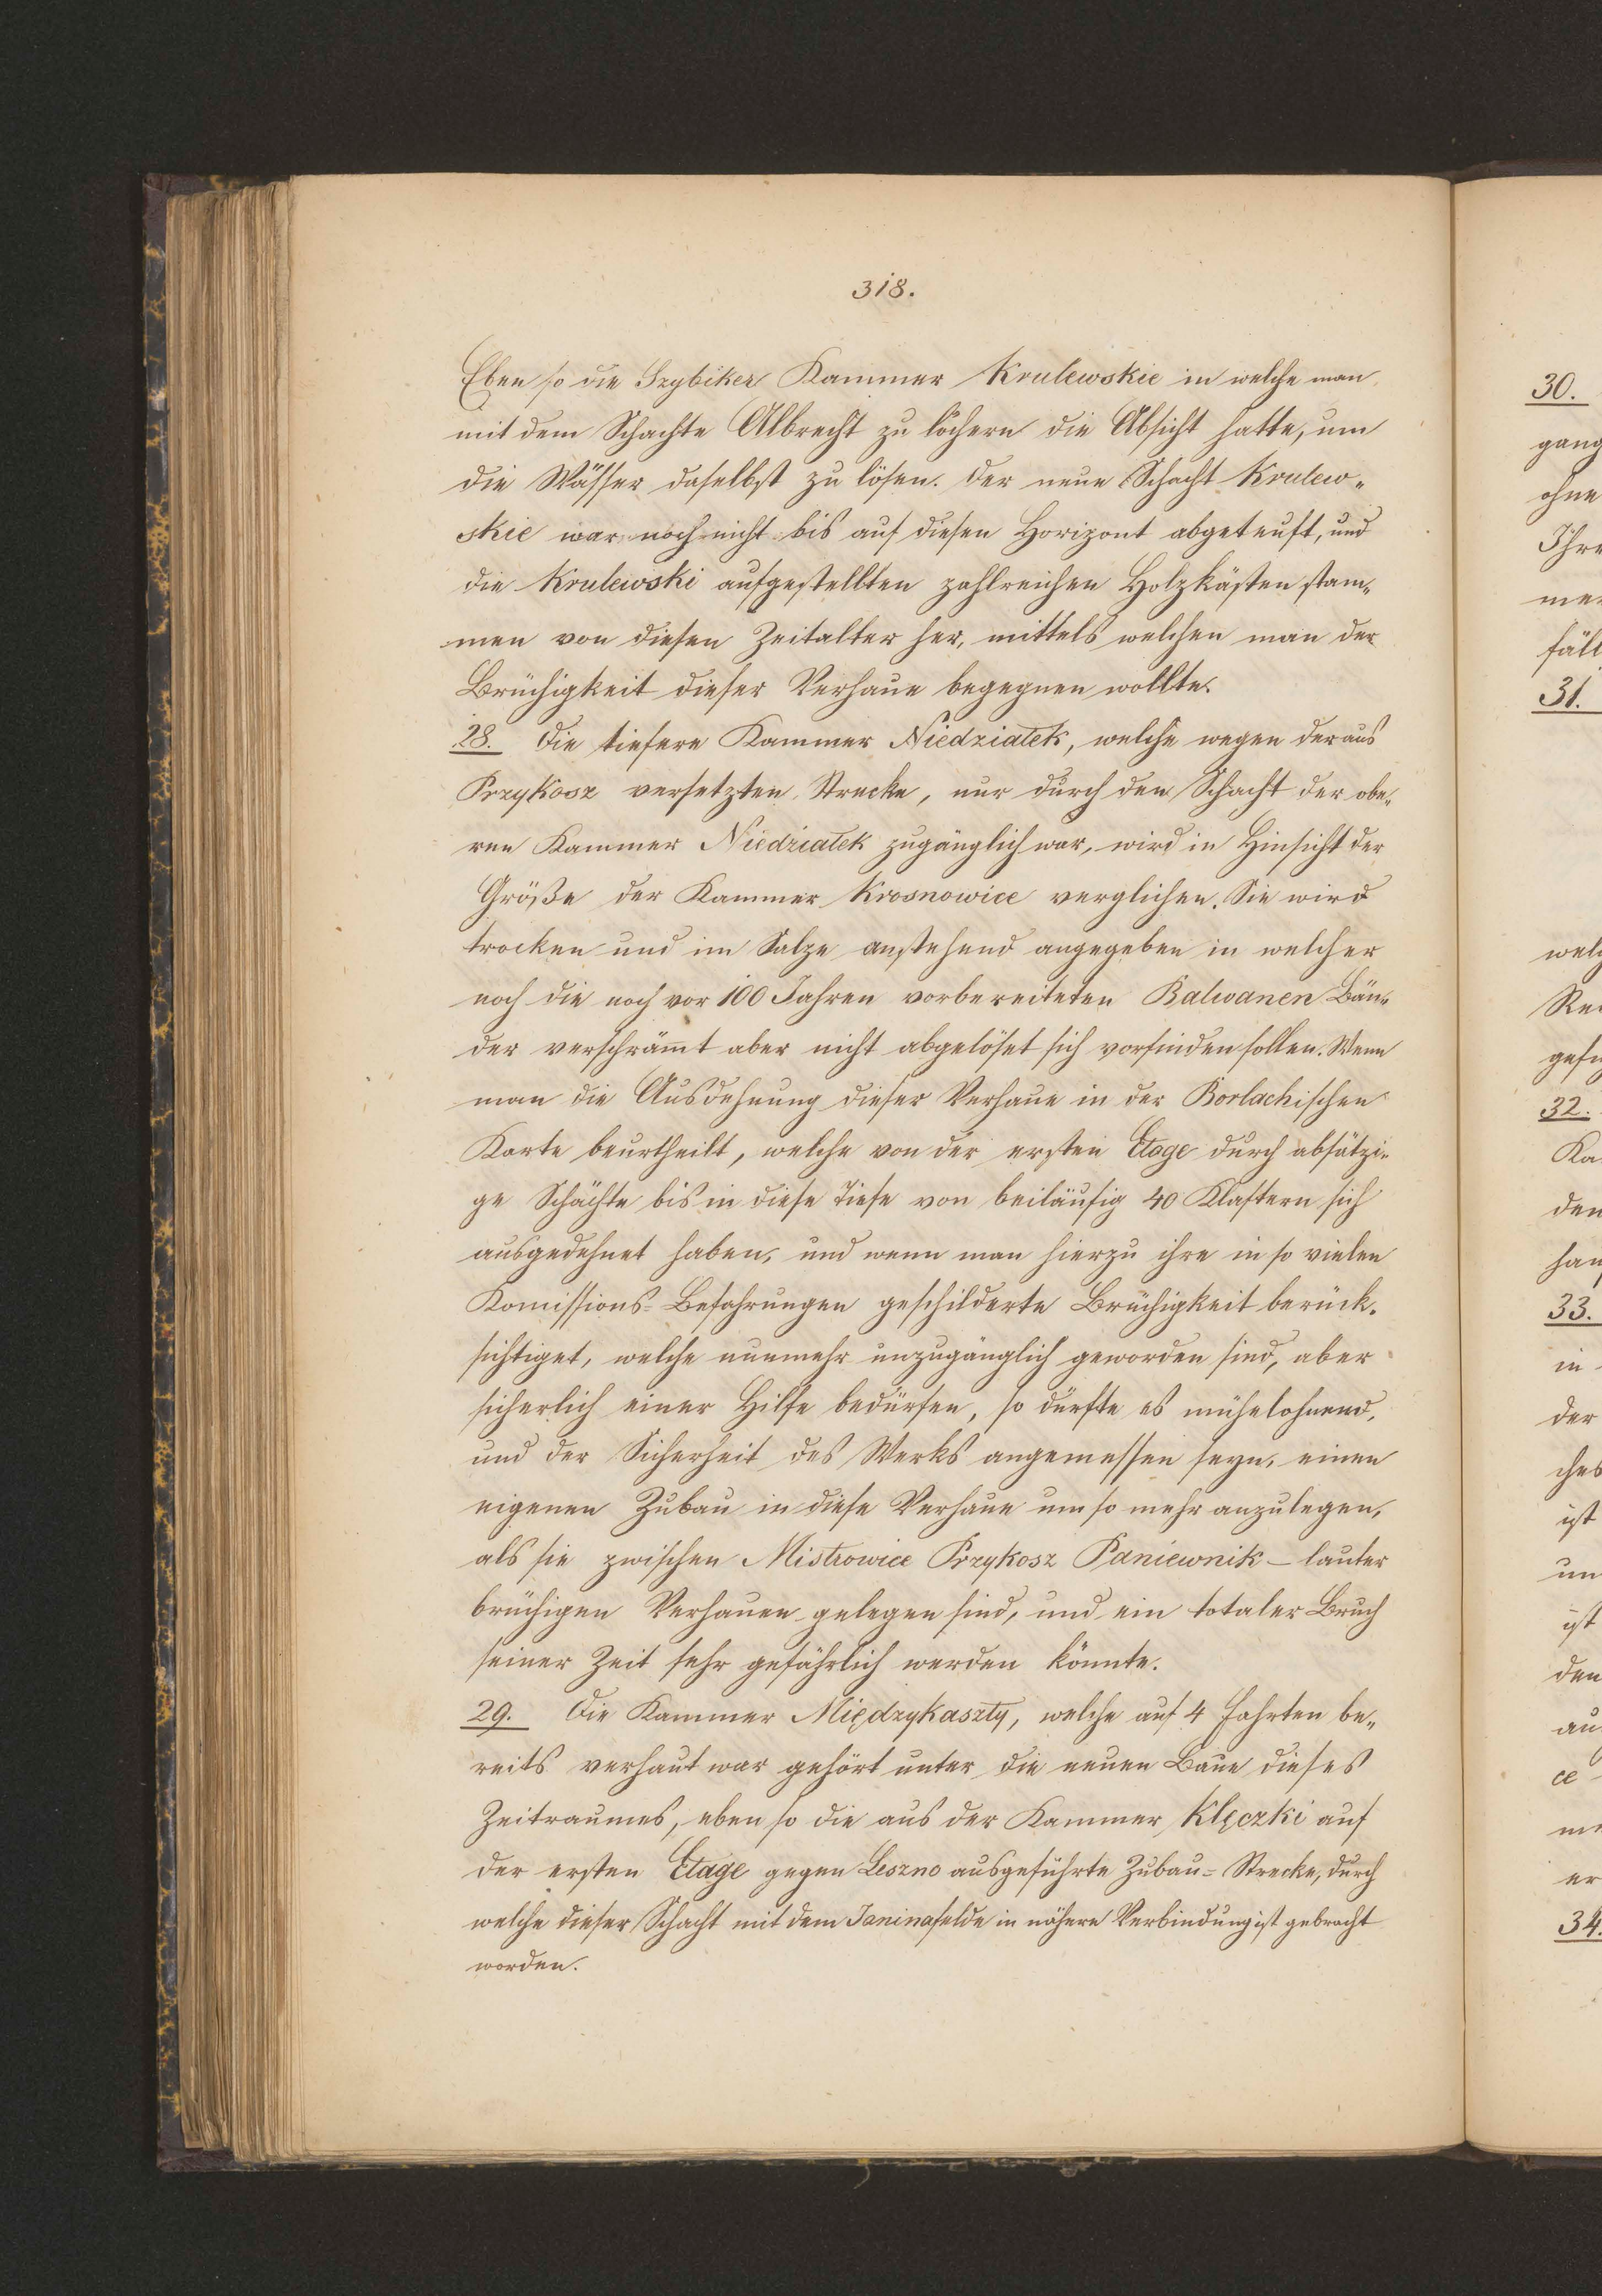 318.
Eben so die Szybiker Kammer Krulewskie in welche man
mit dem Schachte Albrecht zu löchern die Absicht hatte, um
die Wässer daselbst zu lösen. Der neue Schacht Krulew„
skie war noch nicht bis auf diesen Horizont abgeteuft, und
die Krulewski aufgestellten zahlreichen Holzkästen stam„
men von diesen Zeitalter her, mittels welchen man der
Brüchigkeit dieser Verhaue begegnen wollte.
28. Die tiefere Kammer Niedziałek, welche wegen der aus
Przykosz versetzten Strecke, nur durch den Schacht der obe„
ren Kammer Niedziałek zugänglich war, wird in Hinsicht der
Größe der Kammer Krosnowice verglichen. Sie wird
trocken und im Salze anstehend angegeben in welcher
noch die noch vor 100 Jahren vorbereiteten Balwanen Bän„
der verschrämt aber nicht abgelöset sich vorfinden sollen. Wenn
man die Ausdehnung dieser Verhaue in der Borlachischen
Karte beurtheilt, welche von der ersten Etage durch absätzi„
ge Schächte bis in diese Tiefe von beiläufig 40 Klaftern sich
ausgedehnet haben, und wenn man hierzu ihre in so vielen
Komissions-Befahrungen geschilderte Brüchigkeit berück„
sichtiget, welche nunmehr unzugänglich geworden sind, aber
sicherlich einer Hilfe bedürfen, so dürfte es mühelohnend,
und der Sicherheit des Werks angemessen seyn, einen
eigenen Zubau in diese Verhaue um so mehr anzulegen,
als sie zwischen Mistrowice Przykosz Paniewnik – lauter
brüchigen Verhauen gelegen sind, und ein totaler Bruch
seiner Zeit sehr gefährlich werden könnte.
29. Die Kammer Międzykaszty, welche auf 4 Fahrten be„
reits verhaut war gehört unter die neuen Baue dieses
Zeitraumes, eben so die aus der Kammer Klęczki auf
der ersten Etage gegen Leszno ausgeführte Zubau-Strecke, durch
welche dieser Schacht mit dem Janinafelde in nähere Verbindung ist gebracht
worden.
30.
gang
ohne
Ihre
mer
fäll
31.
welc
32.
Ka
den
33.
in
der
ches
ist
un
ist
den
au
ce
er
34.